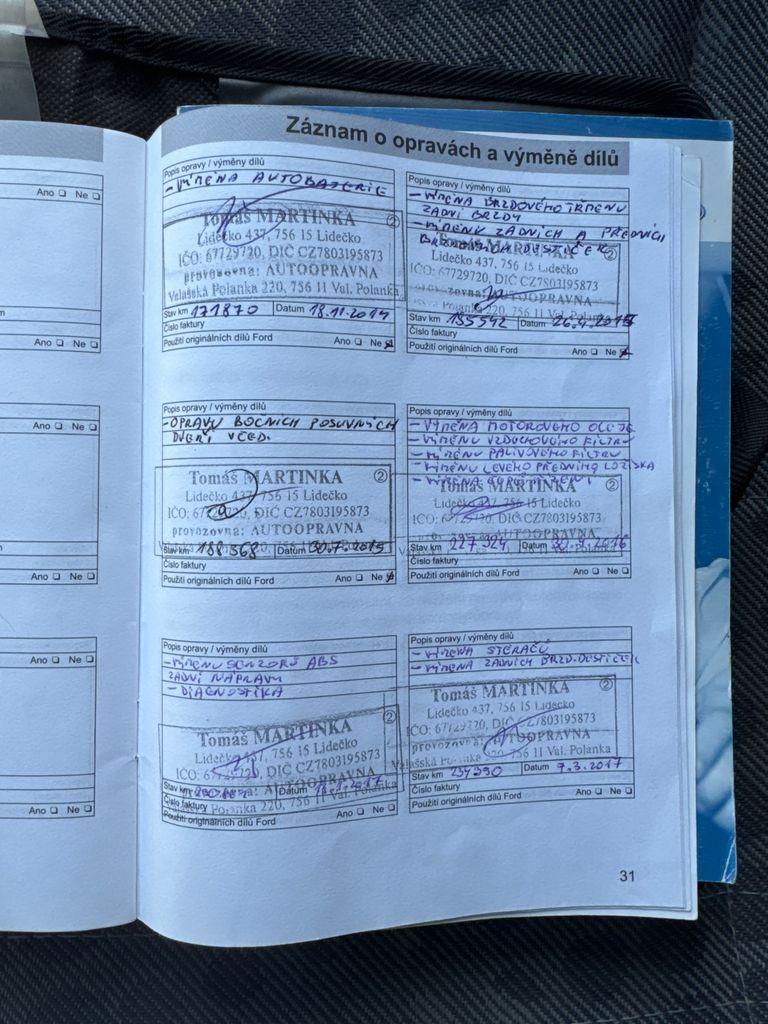 Záznam o opravách a výměně dílů
Popis opravy / výměny dílů
- VÝMĚNA AUTOBATERIE
Tomáš MARTINKA
Lidečko 437, 756 15 Lidečko
IČO: 67729720, DIČ CZ7803195873
provozovna: AUTOOPRAVNA
Valašská Polanka 220, 756 11 Val. Polanka
Stav km 171870 Datum 18.11.2014
Číslo faktury
Použití originálních dílů Ford Ano Ne
Popis opravy / výměny dílů
- VÝMĚNA BRZDOVÉHO TŘMENU
ZADNÍ BRZDY
- VÝMĚNU ZADNÍCH A PŘEDNÍCH
BRZDOVÝCH DESTIČEK
Tomáš MARTINKA
2
Lidečko 437, 756 15 Lidečko
IČO: 67729720, DIČ CZ7803195873
provozovna: AUTOOPRAVNA
Polanka 220, 756 11 Val. Polanka
Stav km 185542 Datum
Číslo faktury
Použití originálních dílů Ford Ano Ne
Popis opravy / výměny dílů
- OPRAVU BOČNÍCH POSUVNÝCH
DVEŘÍ VČED.
Tomáš MARTINKA 2
Lidečko 437, 756 15 Lidečko
IČO: 67729720, DIČ CZ7803195873
provozovna: AUTOOPRAVNA
Stav km 188368 Datum 30.7.2015
Číslo faktury
Použití originálních dílů Ford Ano Ne
Popis opravy / výměny dílů
- VÝMĚNA MOTOROVÉHO OLEJE
- VÝMĚNU VZDUCHOVÉHO FILTRU
- VÝMĚNU PALIVOVÉHO FILTRU
- VÝMĚNU LEVÉHO PŘEDNÍHO LOŽISKA
- VÝMĚNA
Tomáš MARTINKA 2
Lidečko 437, 756 15 Lidečko
IČO: 67729720, DIČ CZ7803195873
provozovna: AUTOOPRAVNA
Stav km 227 324 Datum
Číslo faktury
Použití originálních dílů Ford Ano Ne
Popis opravy / výměny dílů
- VÝMĚNU SENZORŮ ABS
ZADNÍ NÁPRAVY
- DIAGNOSTIKA
Tomáš MARTINKA 2
Lidečko 437, 756 15 Lidečko
IČO: 67729720, DIČ CZ7803195873
provozovna: AUTOOPRAVNA
Valašská Polanka 220, 756 11 Val. Polanka
Stav km Datum
Číslo faktury
Použití originálních dílů Ford Ano Ne
Popis opravy / výměny dílů
- VÝMĚNA STĚRAČŮ
- VÝMĚNA ZADNÍCH BRZD.DESTIČEK
Tomáš MARTINKA 2
Lidečko 437, 756 15 Lidečko
IČO: 67729720, DIČ CZ7803195873
provozovna: AUTOOPRAVNA
Valašská Polanka 220, 756 11 Val. Polanka
Stav km 234390 Datum 9.3.2017
Číslo faktury
Použití originálních dílů Ford Ano Ne
31
Ano Ne
Ano Ne
Ano Ne
Ano Ne
Ano Ne
Ano Ne